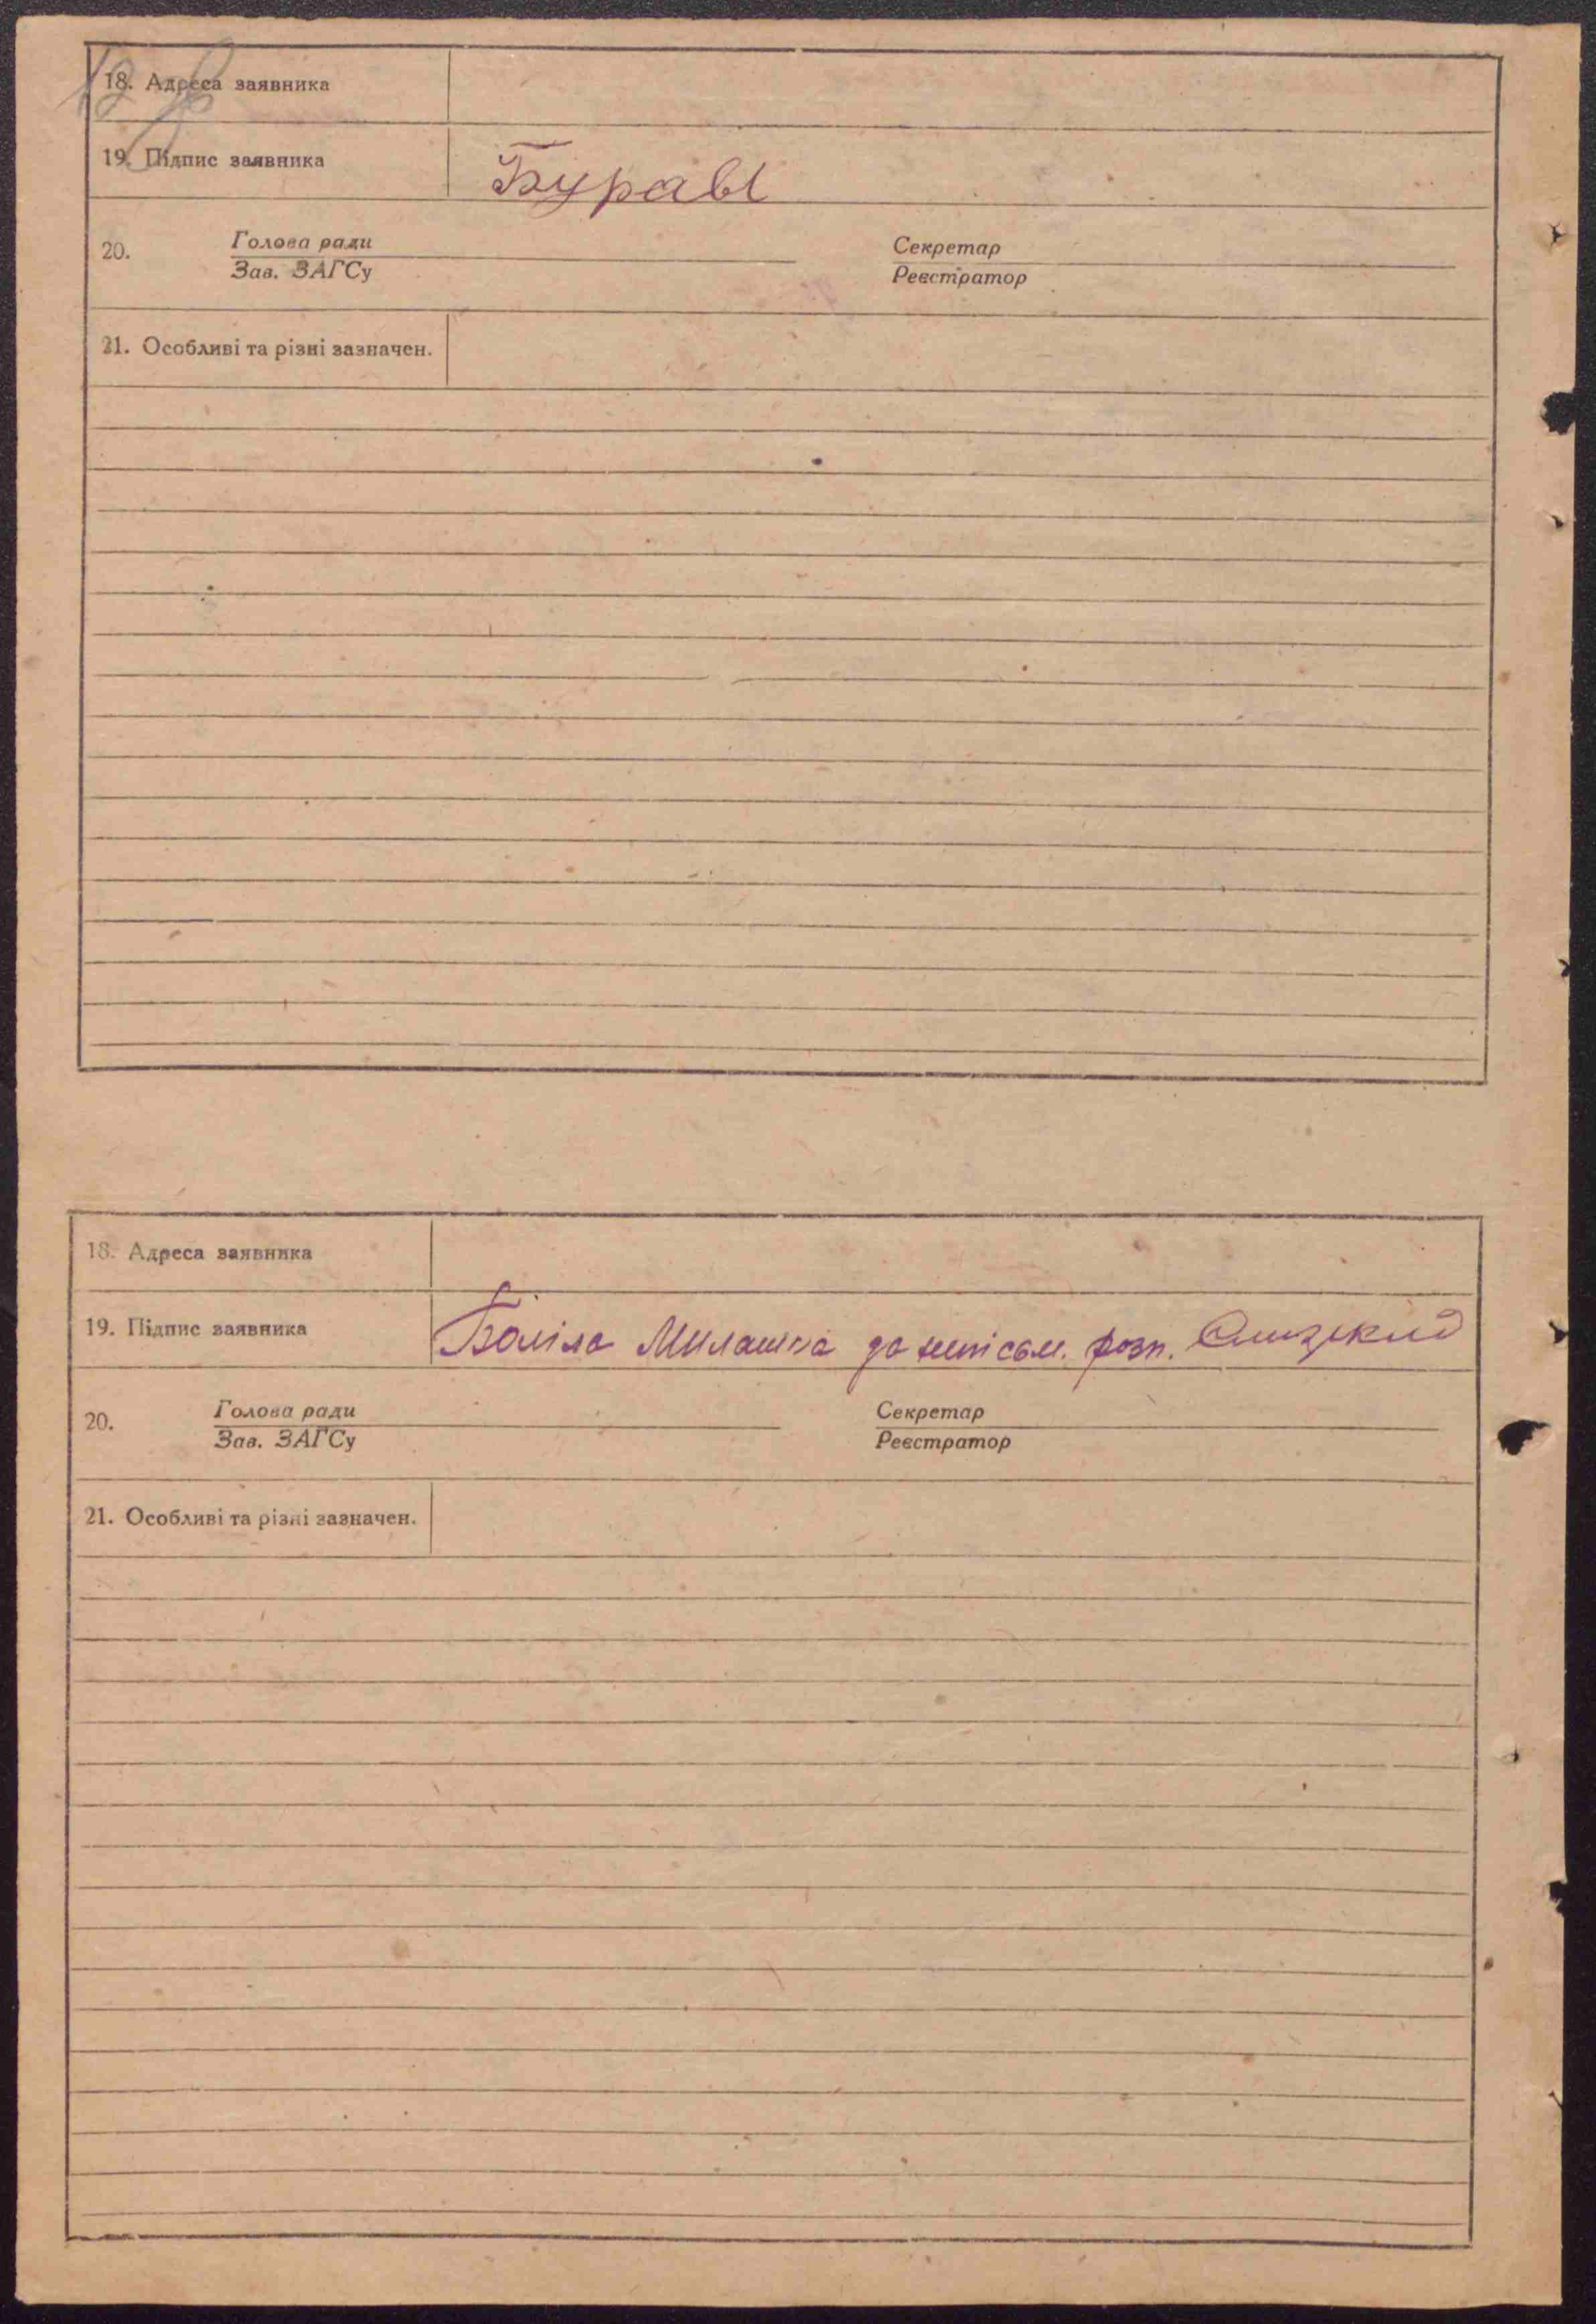 18. Адреса заявника
19. Підпис заявника Буравы
20. Голова ради Секретар
Зав. ЗАГСу Реєстратор
21. Особливі та різні зазначен.
18. Адреса заявника
19. Підпис заявника за розп.
20. Голова ради Секретар
Зав. ЗАГСу Реєстратор
21. Особливі та різні зазначен.